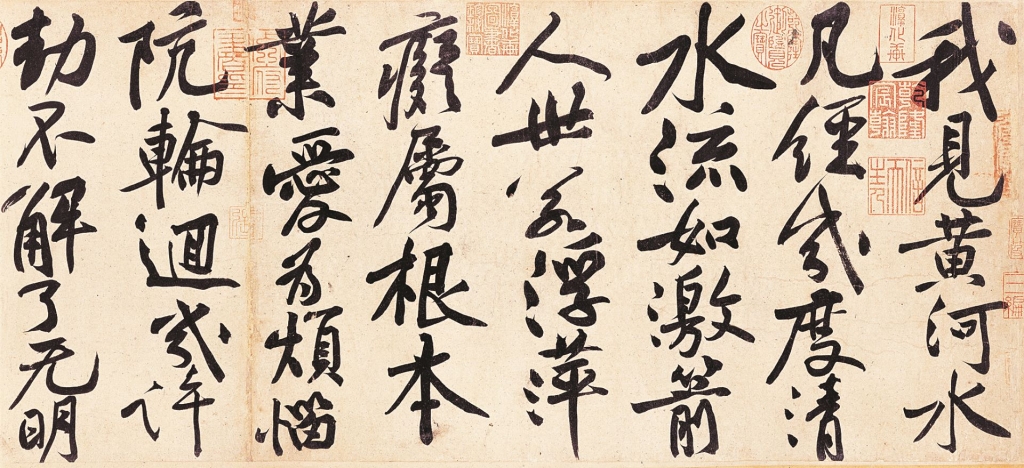 我見黃河水
凡經幾度清
水流如激箭
人世若浮萍
癡屬根本
業愛為煩惱
阬輪迴幾許
劫不解了无明